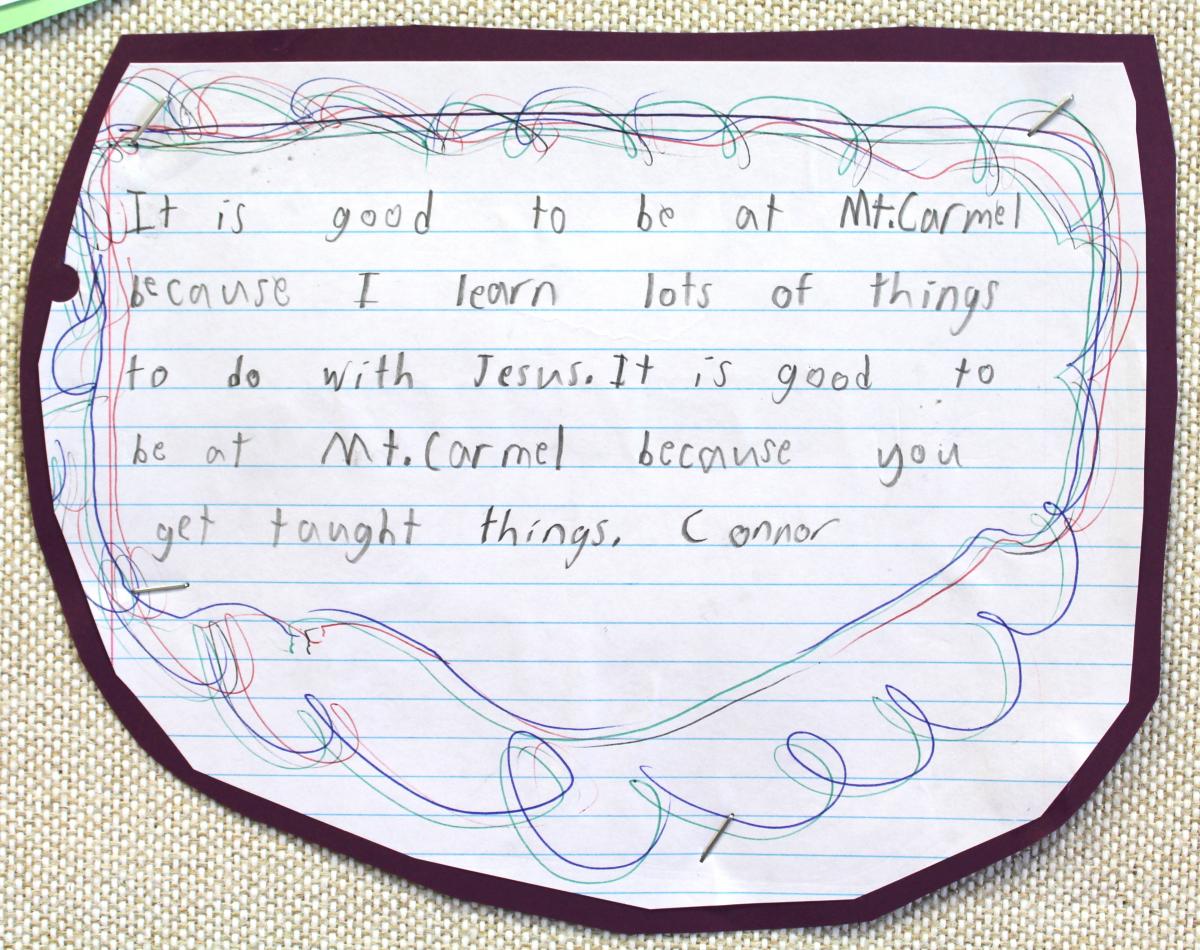 It is good to be at Mt.Carmel
because I learn lots of things
to do with Jesus. It is good to
be at Mt.Carmel because you
get taught things. Connor